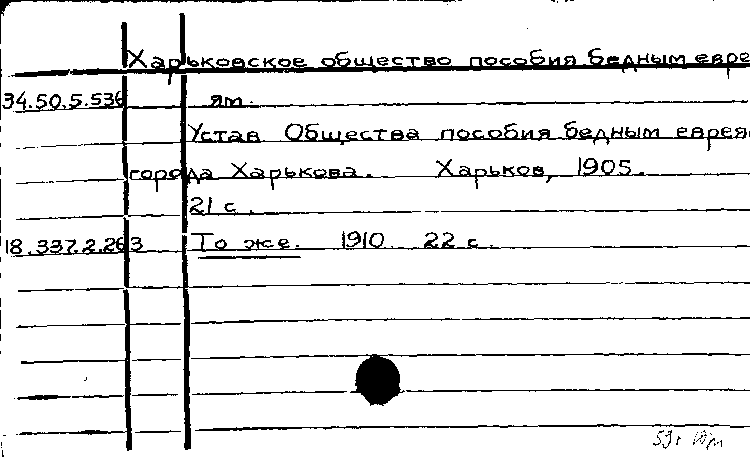 Харьковское общество пособия бедным евре
34.50.5.536 ям.
Устав Общества пособия бедным еврея
города Харькова. Харьков, 1905.
21 с.
18.337.2.263 То же. 1910 22 с.